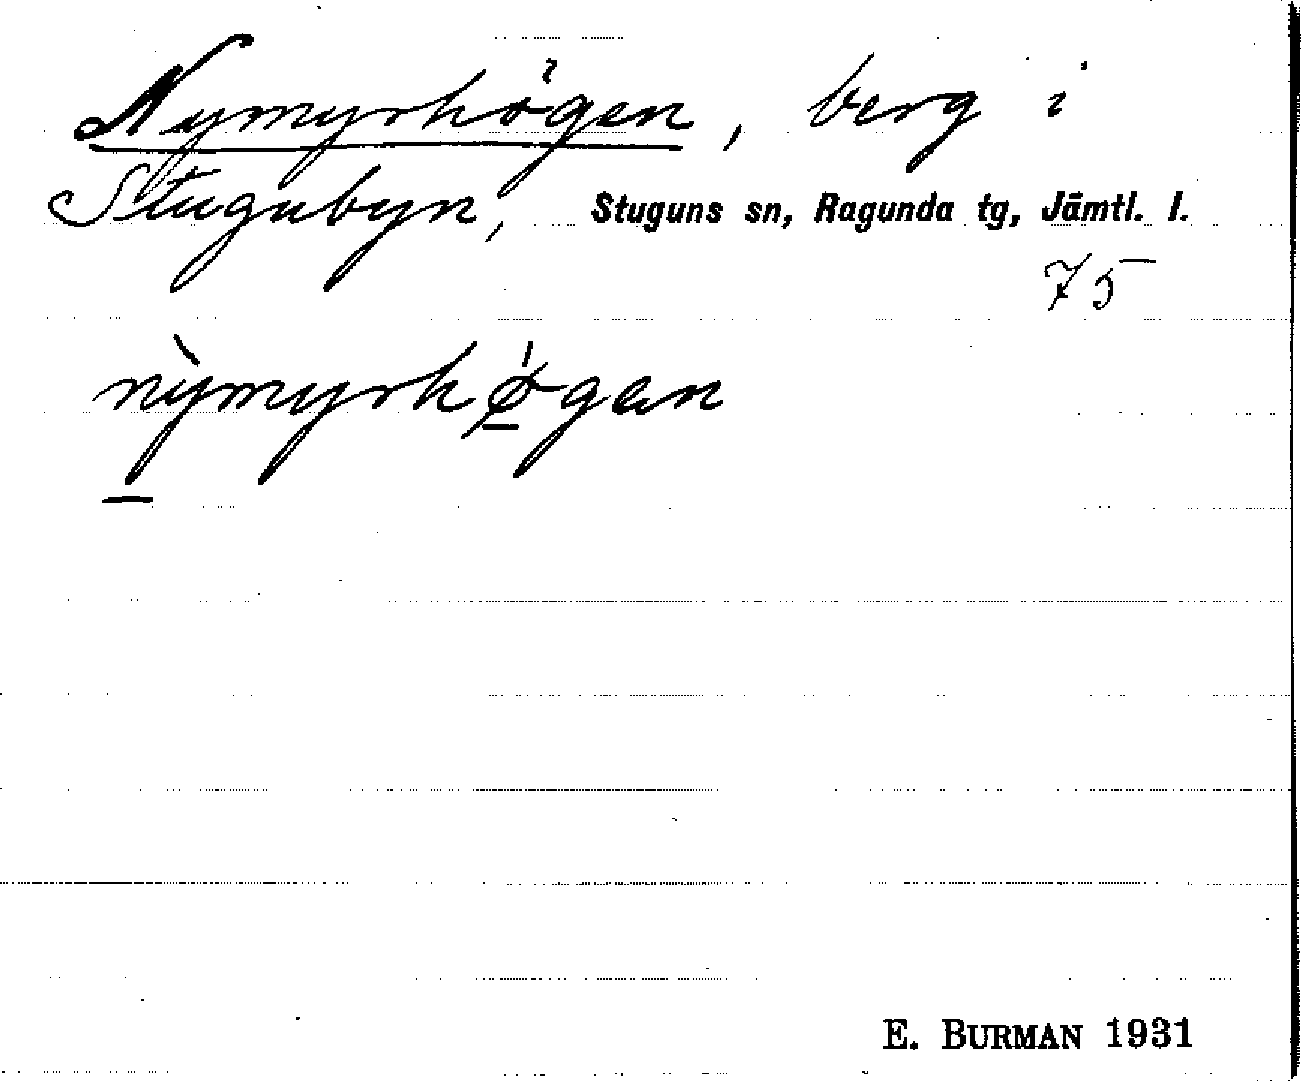 Nymyrhögen, berg i
Stugubyn, Stuguns sn, Ragunda tg, Jämtl. l.
75
nỳmyrhǿgan
E. BURMAN 1931